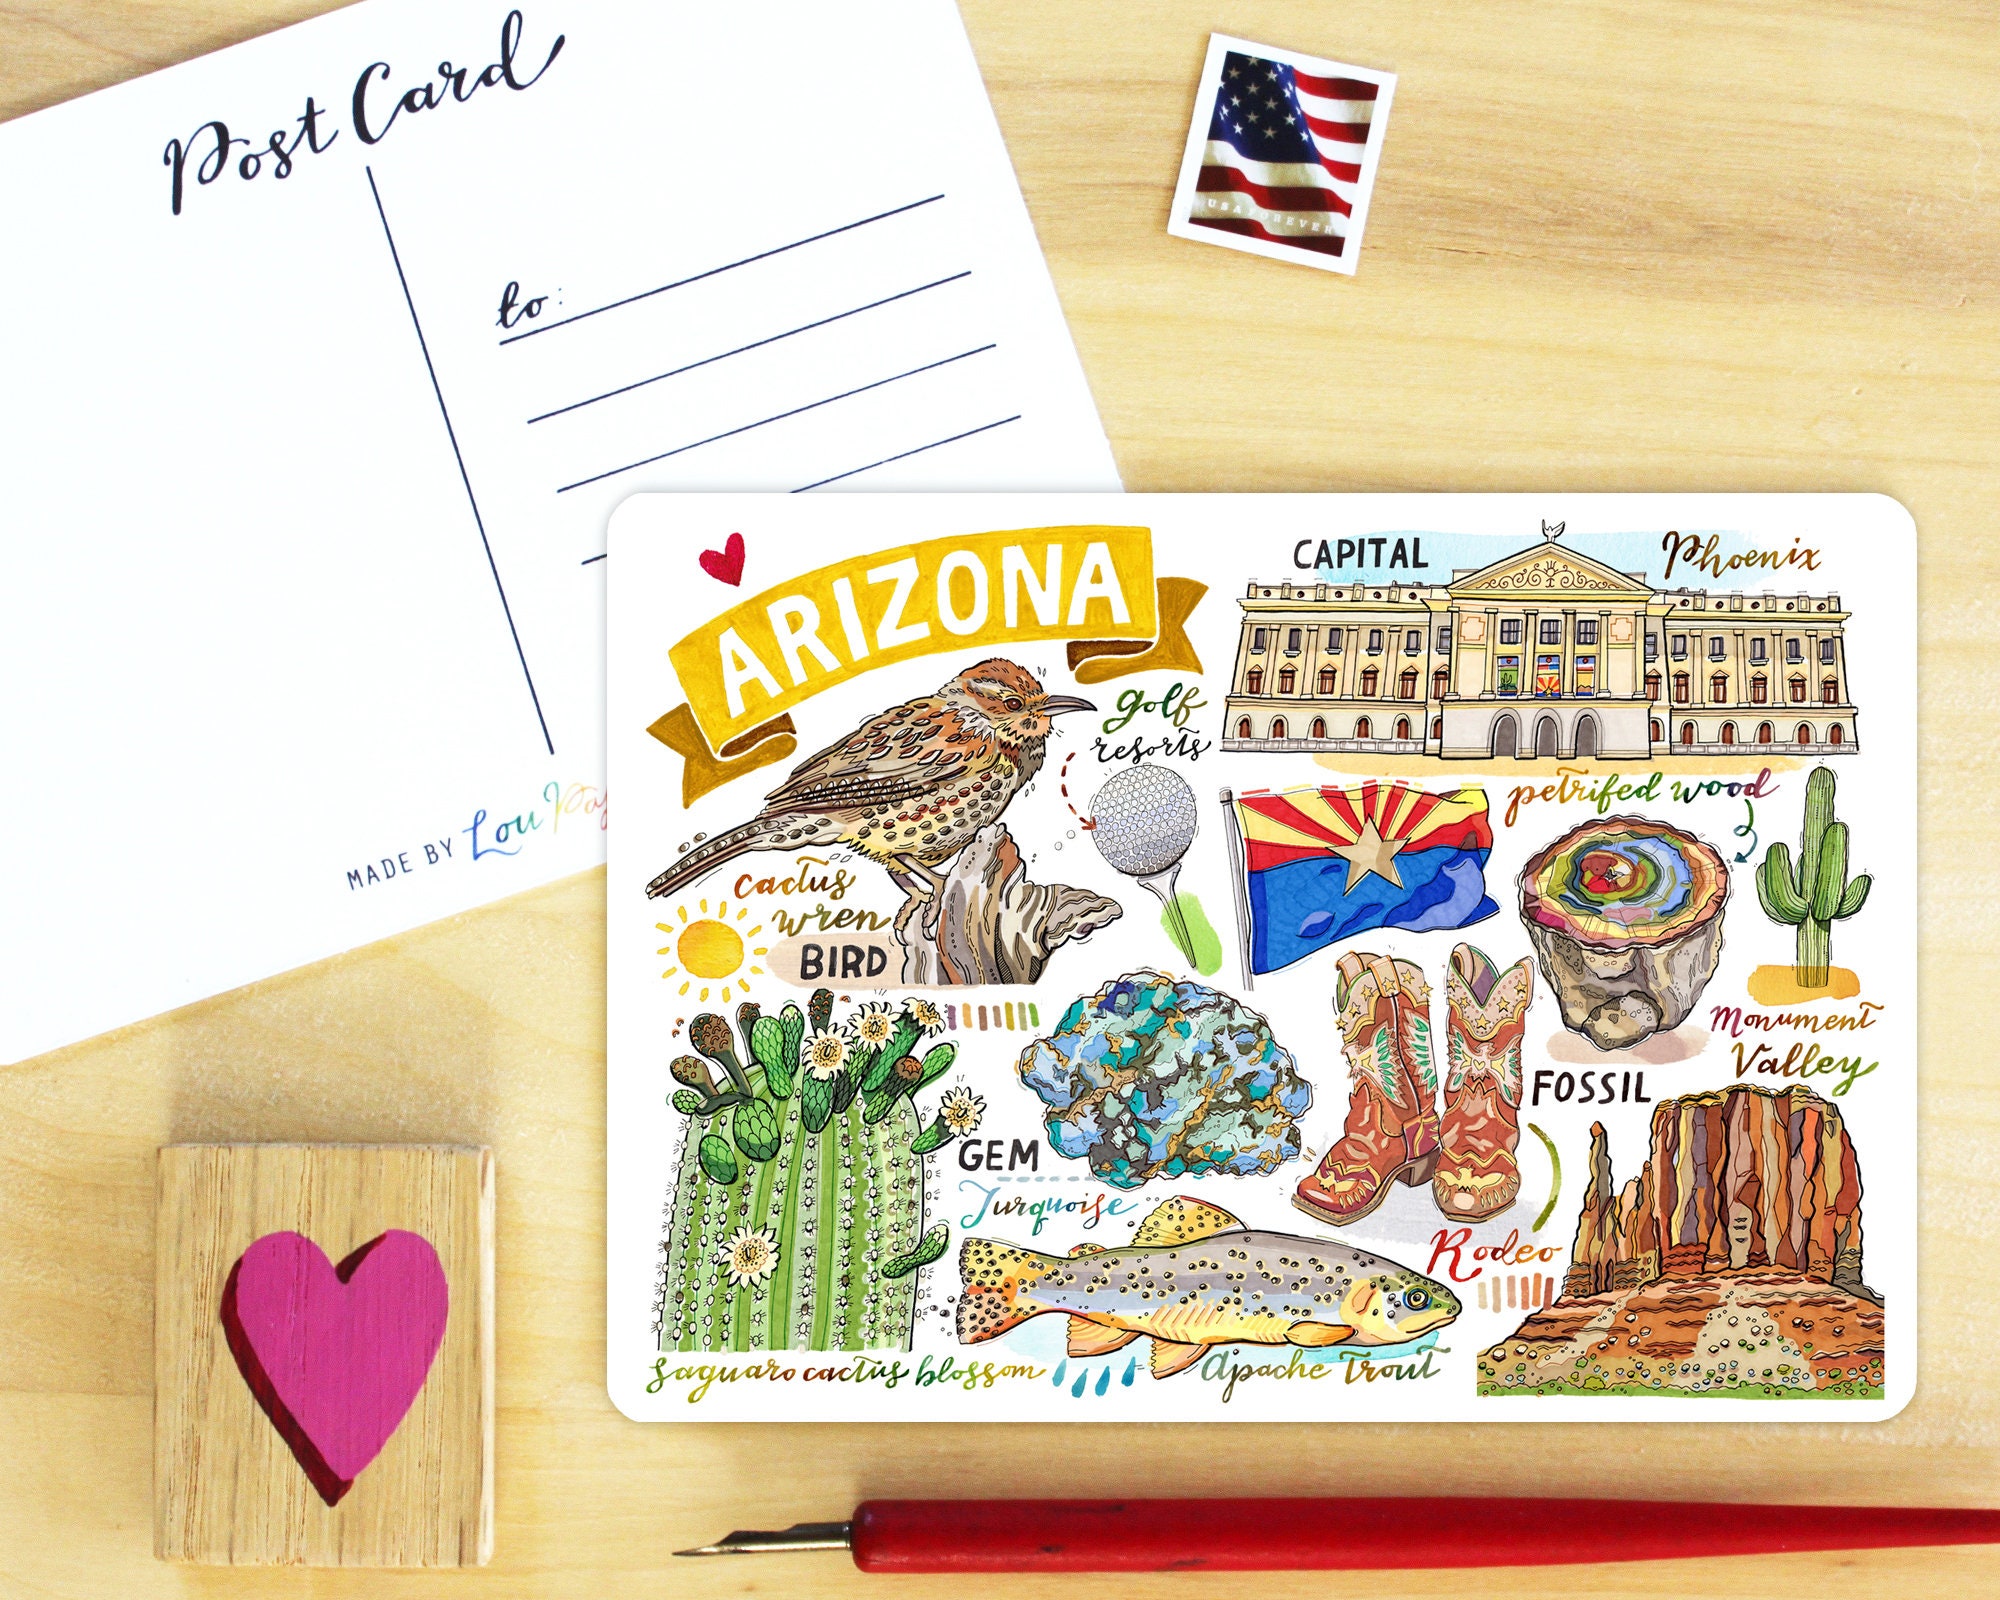 Post Card
to:
MADE BY Lou
USA FOREVER
ARIZONA
CAPITAL Phoenix
golf
resorts
petrifed wood
cactus
wren
BIRD
Monument
Valley
FOSSIL
GEM
Turquoise
Rodeo
saguaro cactus blossom
apache trout